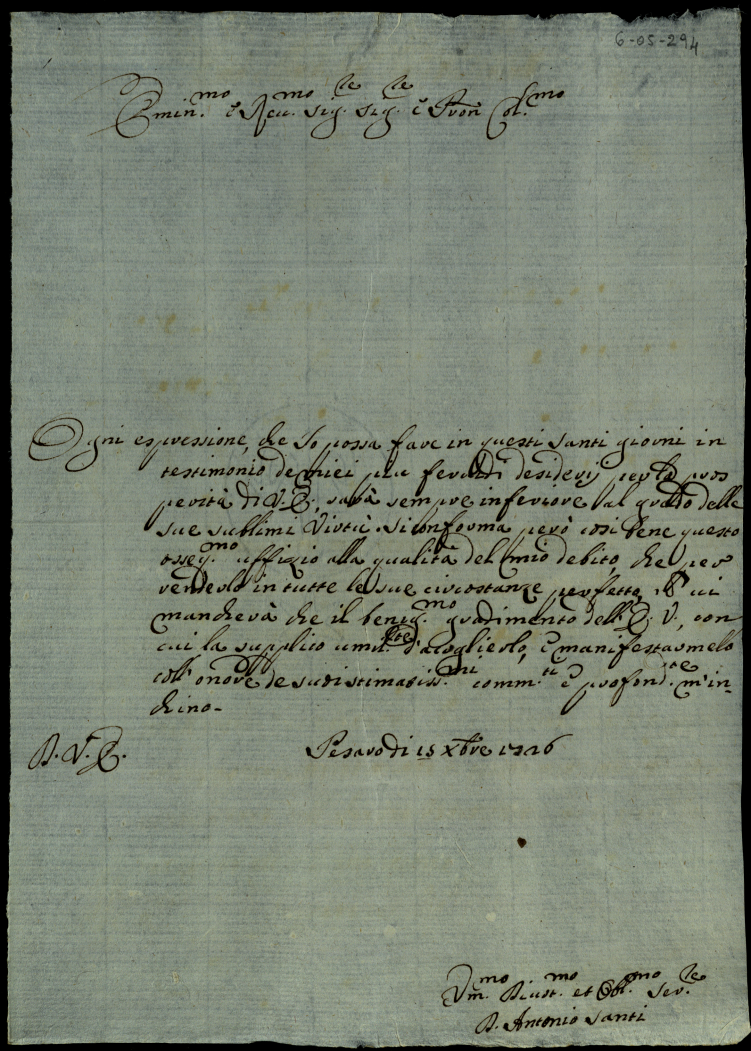 6-05-294
Emin.mo e Reu.mo Sig.re Sig.re e Pron Col.mo
Ogni espressione, che Io possa fare in questi santi giorni in
testimonio de miei piu feruidi desiderij per la pros
perità di V. E., sarà sempre inferiore al grado delle
sue sublimi Virtù. Si conforma però così bene questo
osseq.mo uffizio alla qualità del mio debito, che per
renderlo in tutte le sue circostanze perfetto, ui
mancherà che il benig.mo gradimento dell' E. V., con
cui la supplico umil.te d'accoglierlo, e manifestarmelo
coll' onore de suoi stimatiss.mi comm.ti e profond.te m'in-
chino-
D. V. E.
Pesaro di 15 Xbre 1726
Vm.mo Diuot.mo et Obl.mo Ser.re
D. Antonio Santi